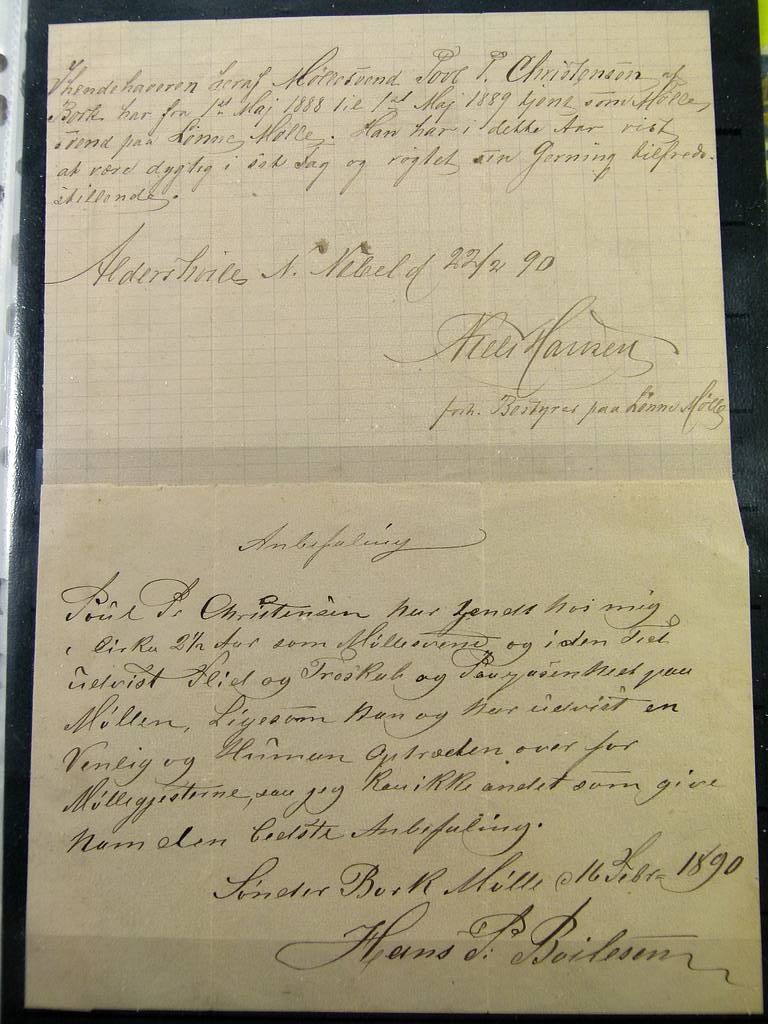 Ihændehaveren heraf Møllesvend Povl P. Christensen af
Bork har fra 1st Maj 1888 til 1st Maj 1889 tjent som Mølle,
svend paa Lønne Mølle. Han har i dette Aar vist
at være dygtig i sit Fag og røgtet sin Gerning tilfreds-
stillende.
N. Nebel d 22/2 90
Niels Hansen
forh. Bestyrer paa Lønne Mølle
Anbefaling
Poul Pr Christensen har tjendt hos mig
i Cirka 2½ Aar som Møllesvend, og i den Tid
udvist Flid og Troskab og Paapasenhed paa
Møllen, Ligesom han og har udvist en
Venlig og Human Optræden over for
Møllegjesterne, saa jeg kan ikke andet som give
ham den bedste Anbefaling.
Sønder Bork Mølle d 16 Febr 1890
Hans P. Boilesen